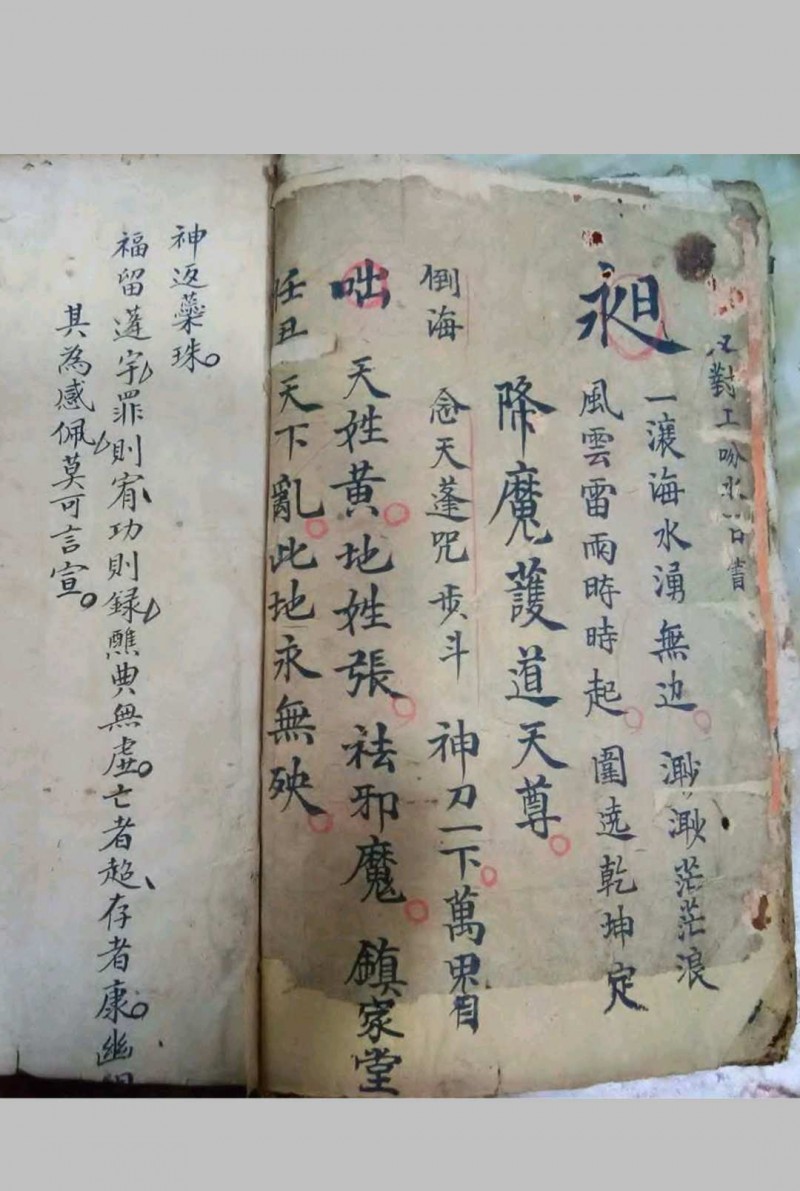 對工吩水一口書
一瀼海水湧無边渺渺茫茫浪
昶
風雲雷雨時時起圍遶乾坤定
降魔護道天尊
倒海
念天蓬咒步斗神刀一下萬
咄天姓黃地姓張祛邪魔鎮家堂
任丑天下亂此地永無殃
神返蘂珠
福留蓮宇罪則宥功則録醮典無虛亡者超存者康幽
其為感佩莫可言宣